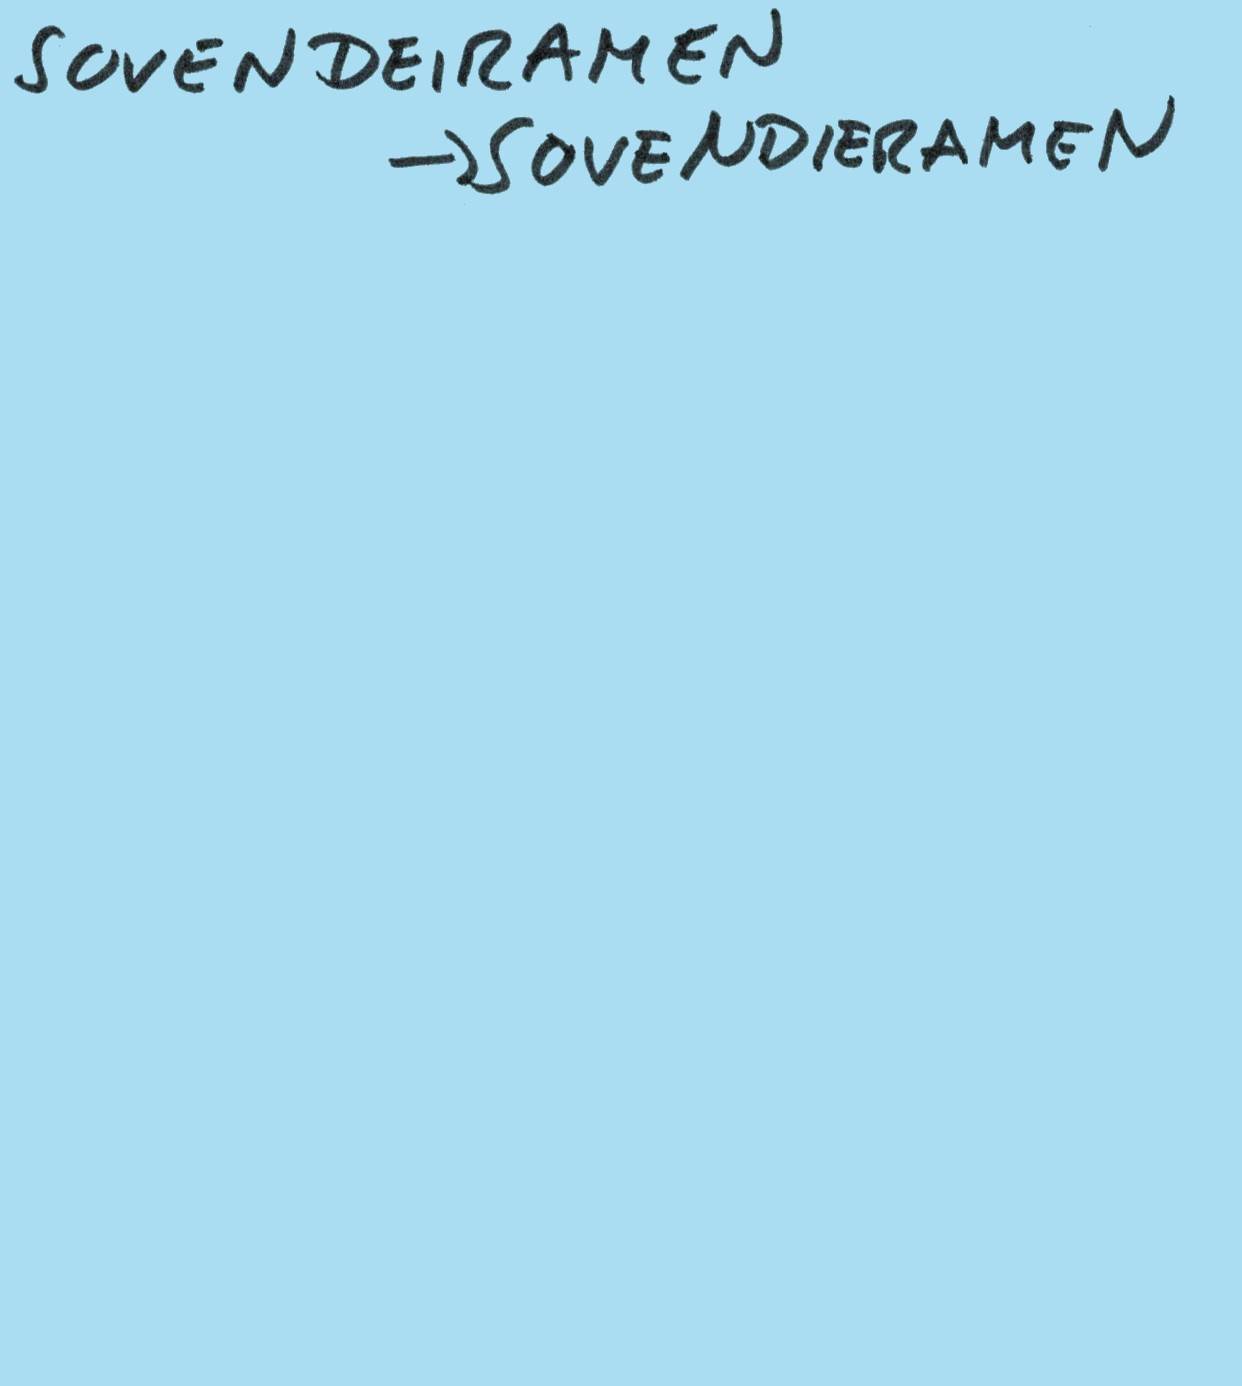 SOVENDEIRAMEN
→SOVENDIERAMEN